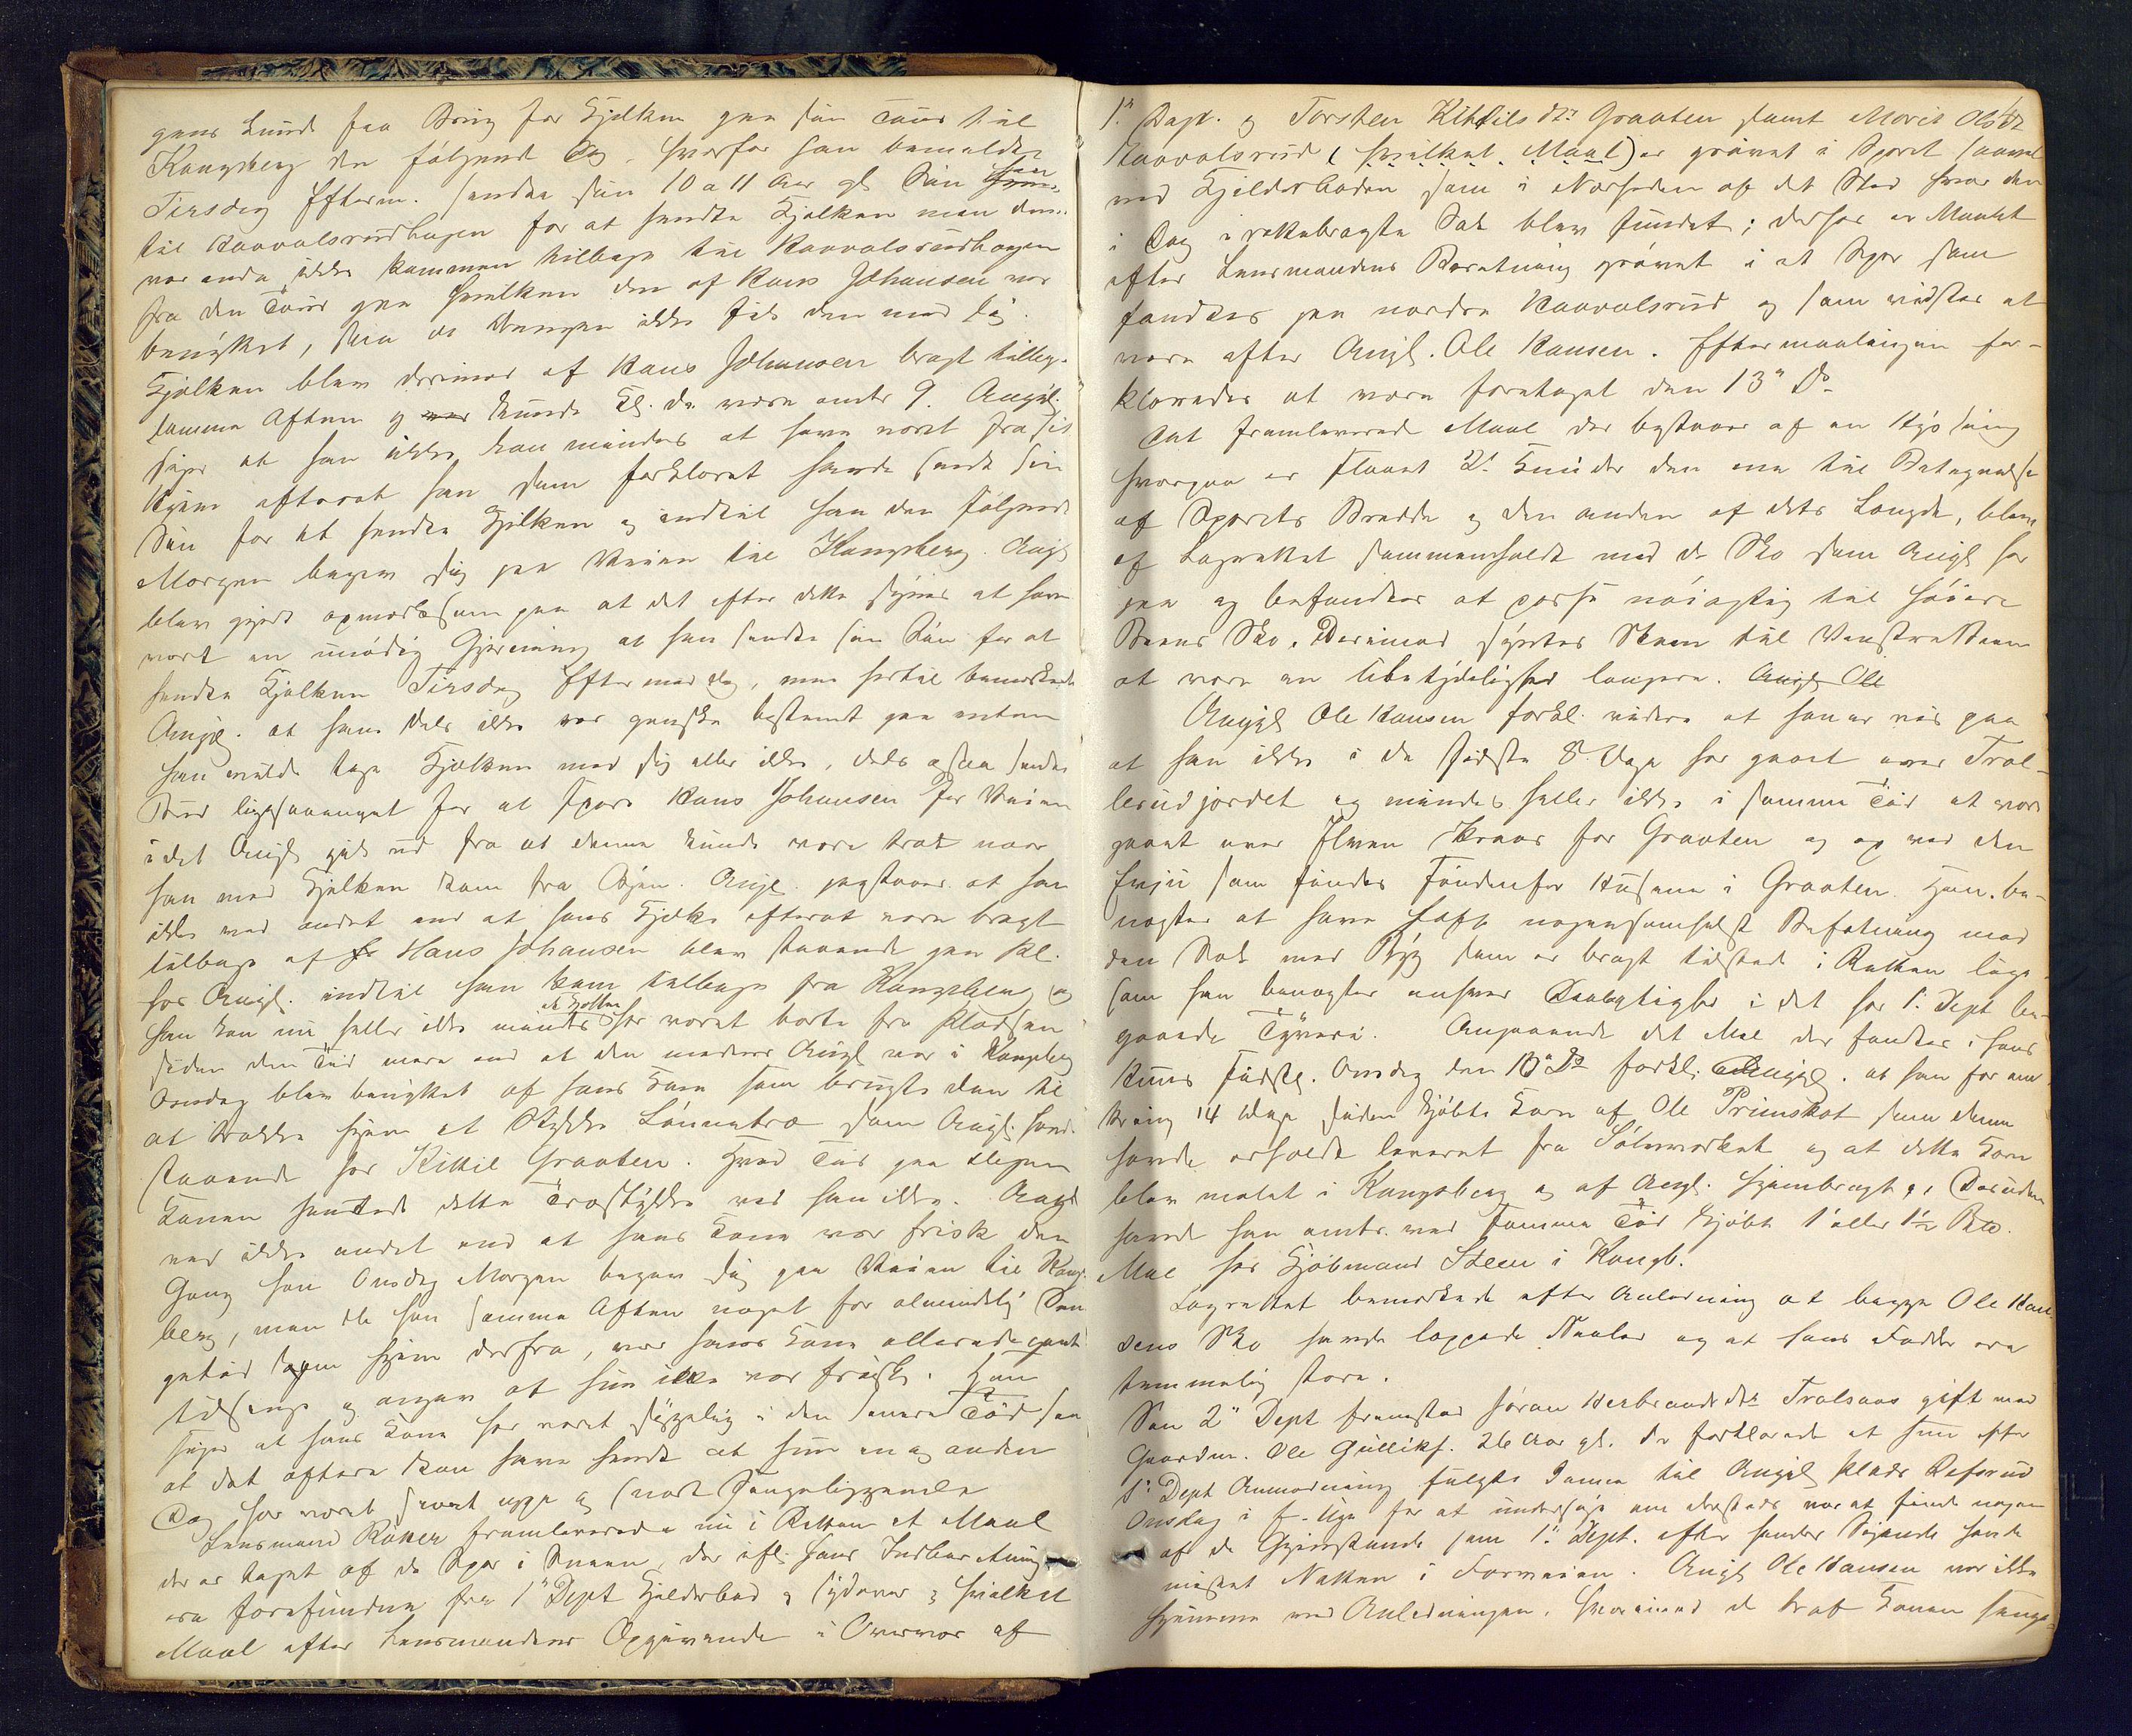 gens kunde faa Brug for Kjelken paa sin Tour til
Kongsberg den følgende Dag, hvorfor han bemeldte
Tirsdag Efterm. sendte sin 10 a 11 Aar gl. Søn
til Raavalsrudhagen for at hendte Kjelken men denne
var endnu ikke kommen tilbage til Raavalsrudhagen
fra den Tour paa hvilken den af Hans Johansen var
benyttet, saa at Drengen ikke fik den med sig.
Kjelken blev derimod af Hans Johansen bragt tilbage
samme Aften og kunde Kl. da være omtr 9. Angjl.
siger at han ikke kan mindes at have været fra sit
Hjem efterat han som forklaret havde sendt sin
Søn for at hendte Kjelken og indtil han den følgende
Morgen begav sig paa Veien til Kongsberg. Angjl
blev gjort opmærksom paa at det efter dette synes at have
været en unødig Gjerning at han sendte sin Søn for at
hendte Kjelken Tirsdag Eftermiddag, men hertil bemærkede
Angjl. at han dels ikke var ganske bestemt paa enten
han vilde tage Kjelken med sig eller ikke, dels ogsaa sendte
Bud ligesaameget for at spare Hans Johansen for Veien
idet Angjl gik ud fra at denne kunde være træt naar
han med Kjelken kom fra Byen. Angjl. paastaar at han
ikke ved andet end at hans Kjelke efterat være bragt
tilbage af Hans Johansen blev staaende paa Pl.
hos Angjl. indtil han kom tilbage fra Kongsberg og
han kan nu heller ikke mindes at Kjelken har været borte fra Pladsen
siden den Tid mere end at den medens Angjl var i Kongsberg
Onsdag blev benyttet af hans Kone som brugte den til
at trække hjem et Stykke Lønnetræ som Angjl. havde
staaende hos Kittil Graaten. Hvad Tid paa Dagen
Konen hentede dette Træstykke ved han ikke. Angjl
ved ikke andet end at hans Kone var frisk den
Gang han Onsdag Morgen begav sig paa Veien til Kongs-
berg, men da han samme Aften noget for almindelig Sen-
getid kom hjem derfra, var hans Kone allerede gaaet
tilsengs og angav at hun ikke var frisk. Han
siger at hans Kone har været sygelig i den senere Tid saa
at det oftere kan have hendt at hun en og anden
Dag har været snart oppe og snart Sengeliggende
Lensmand Röker fremleverede nu i Retten et Maal
der er taget af de Spor i Sneen, der ifl. hans Indberetning
ere forefundne fra 1ste Dept Kjelderbod og sydover; hvilket
Maal efter Lensmandens Opgivende i Overvær af
1st Dept. og Torsten Kittils dtr Graaten samt Marit Olsdt
Raavalsrud (hvilket Maal) er prøvet i Sporet saavel
ved Kjelderboden som i Nærheden af det Sted hvor den
i Dag i rettebragte Sæk blev fundet; derhos er Maalet
efter Lensmandens Beretning prøvet i et Spor som
fandtes paa nordre Raavalsrud og som vidstes at
være efter Angjl. Ole Hansen. Eftermaalingen for-
klaredes at være foretaget den 13de Ds
Det fremleverede Maal der bestaaer af en Hyssing
hvorpaa er slaaet 2de Knuder den ene til Betegnelse
af Sporets Bredde og den anden af dets Længde, blev
af Lagrettet sammenholdt med de Sko som Angjl har
paa og befandtes at passe nøiagtig til høire
Beens Sko. Derimod syntes Skoen til Venstre Been
at være en Ubetydelighed længere. Angjl Ole
Angjl Ole Hansen forkl. videre at han er vis paa
at han ikke i de sidste 8 Dage har gaaet over Trol-
lerudjordet og mindes heller ikke i samme Tid at være
gaaet over Elven tvers for Graaten og op ved den
som findes søndenfor Husene i Graaten. Han be-
nægter at have haft nogensomhelst Befatning med
den Sæk med Byg som er bragt tilstede i Retten lige-
som han benægter enhver Delagtighed i det hos 1st Dept be-
gaaede Tyveri. Angaaende det Mel der fandtes i hans
Huus sidstl. Onsdag den 13de Ds forkl. Angjl. at han for om-
kring 14 Dage siden kjøbte Korn af Ole Primskot som denne
havde erholdt leveret fra Sølvværket og at dette Korn
blev malet i Kongsberg og af Angjl. hjembragt, Desuden
havde han omtr. ved samme Tid kjøbt 1 eller 1½
Mel hos Kjøbmand Steen i Kongb.
Lagrettet bemærkede efter Anledning at begge Ole Han-
sens Sko havde lappede Saaler og at hans Fødder ere
temmelig store.
Som 2det Dept fremstod Jøran Herbrandsdtr Trolsaas gift med
Gaardm. Ole Gulliks. 26 Aar gl. Dp forklarede at hun efter
1st Dept Anmodning fulgte denne til Angjl Plads
Onsdag i f. Uge for at undersøge om der var at finde nogen
af de Gjenstande som 1st Dept. efter hendes Sigende havde
mistet Natten i Forveien. Angjl Ole Hansen var ikke
hjemme ved Anledningen, hvorimod de traf Konen senge-